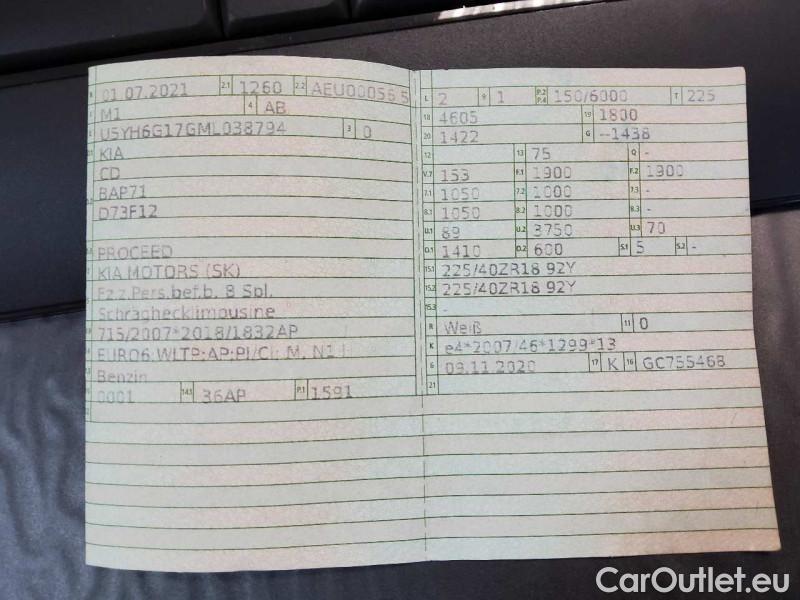 B 01.07.2021 2.1 1260 2.2 AEU00056 5
M1 4 AB
U5YH6G17GML038794 3 0
KIA
CD
BAP71
D73F12
PROCEED
KIA MOTORS (SK)
Fz.z.Pers.bef.b. 8 Spl.
Schräghecklimousine
715/2007*2018/1832AP
EURO6;WLTP;AP;PI/CI; M, N1 I
Benzin
0001 14.1 36AP P.1 1591
L 2 9 1 P.2 P.4 150/6000 T 225
18 4605 19 1800
20 1422 G --1438
12 13 75 Q -
V.7 153 F.1 1900 F.2 1900
7.1 1050 7.2 1000 7.3 -
8.1 1050 8.2 1000 8.3 -
U.1 89 U.2 3750 U.3 70
O.1 1410 O.2 600 S.1 5 S.2 -
15.1 225/40ZR18 92Y
15.2 225/40ZR18 92Y
15.3 -
R Weiß 11 0
K e4*2007/46*1299*13
6 09.11.2020 17 K 16 GC755468
21
CarOutlet.eu